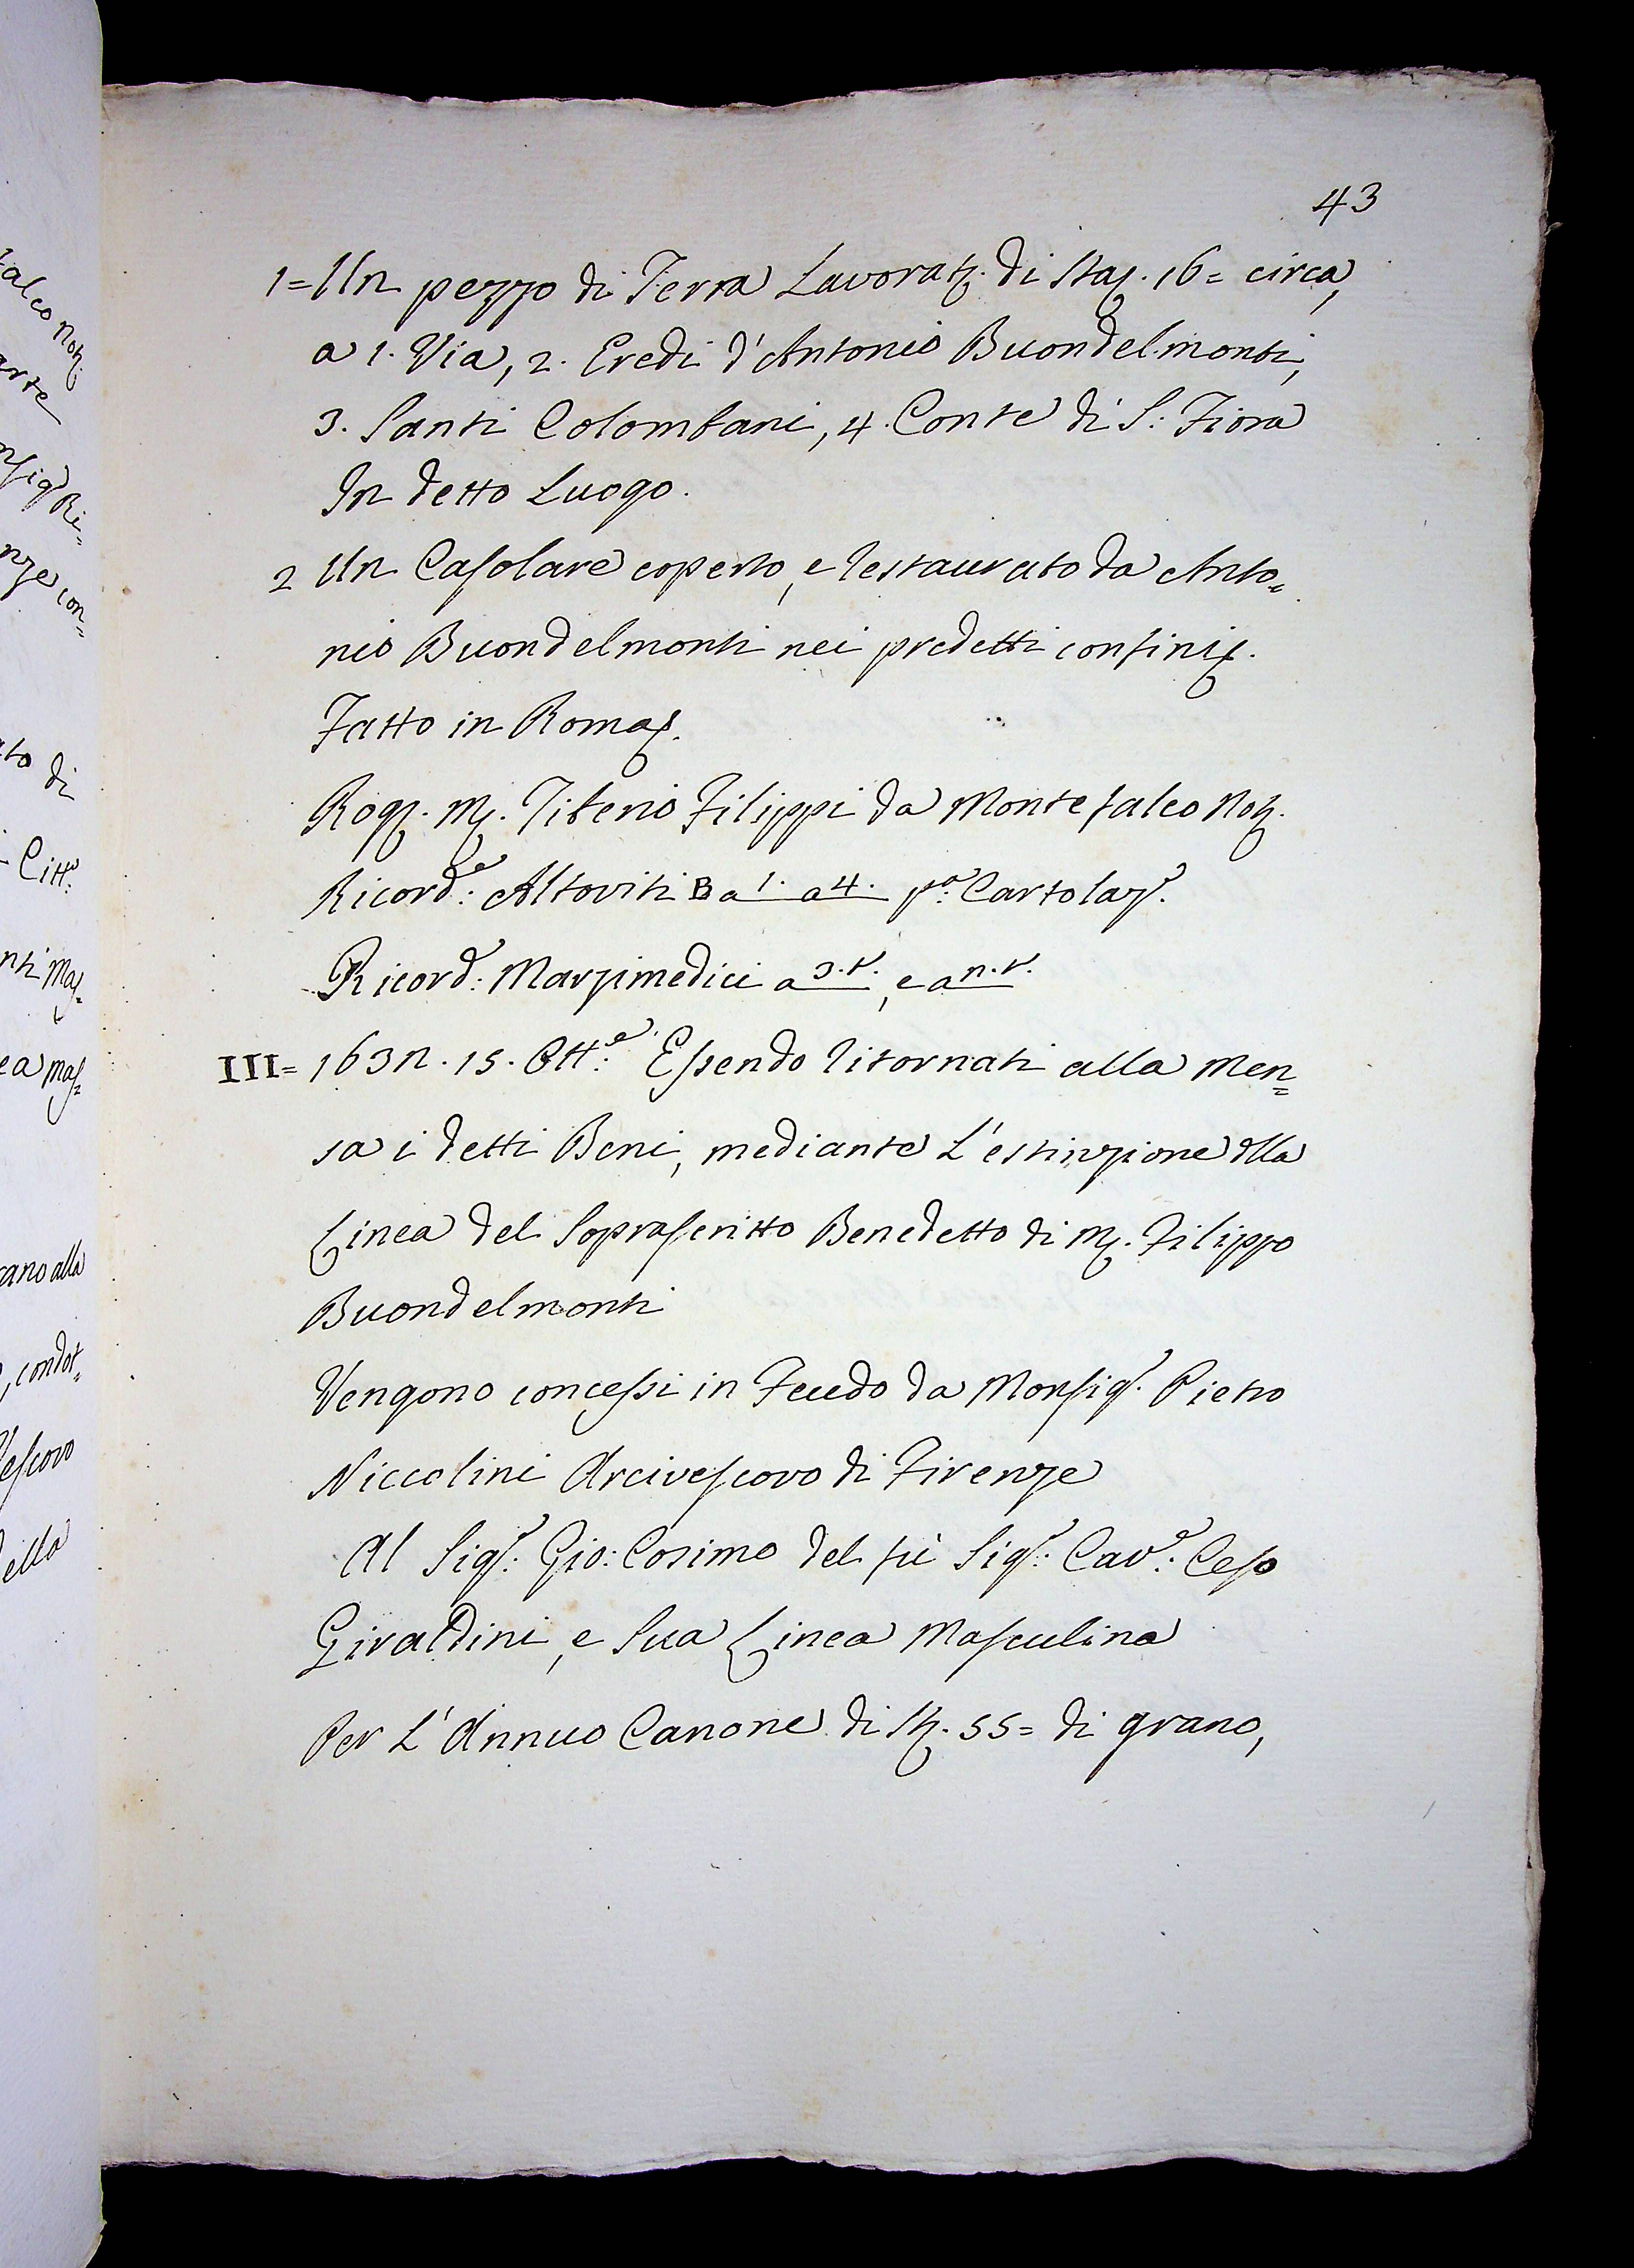 43
1= Un pezzo di Terra Lavorat. di Staj. 16= circa,
a 1. Via, 2. Eredi d'Antonio Buondelmonti,
3. Santi Colombani, 4. Conte di S: Fiora
In detto Luogo.
2 Un Casolare coperto, e restaurato da Anto=
nio Buondelmonti nei predetti confini.
Fatto in Roma.
Rog. M. Tiberio Filippi da Montefalco Not.
Ricord.e: Altoviti B a 1. a 4. p.o Cartolar.
Ricord: Marzimedici a 3.t., e a n.t.
III= 163n. 15. Ott.e: Essendo ritornati alla Men=
sa i detti Beni, mediante L'estinzione dlla
Linea del Soprascritto Benedetto di M. Filippo
Buondelmonti
Vengono concessi in Feudo da Monsig.r Pietro
Niccolini Arcivescovo di Firenze
Al Sig.r: Gio: Cosimo del fù Sig.r: Cav.e: Ceso
Giraldini, e Sua Linea Masculina
Per L'Annuo Canone di St. 55= di grano,
alco Not.
arte
nsig.r Ri=
nze con=
to di
Citt.
nti Mas=
ea mas=
cano alla
, condot=
Vescovo
della